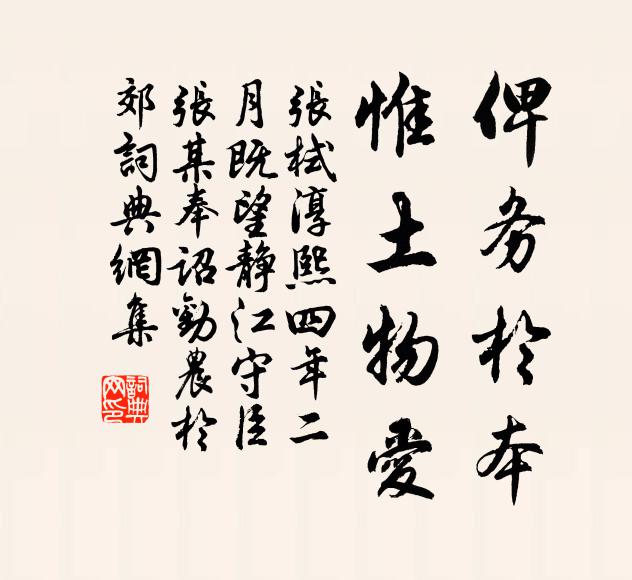 俾务於本
惟土物愛
張栻淳熙四年二
月既望静江守臣
張某奉詔勸農於
郊詞典網集
詞典网印